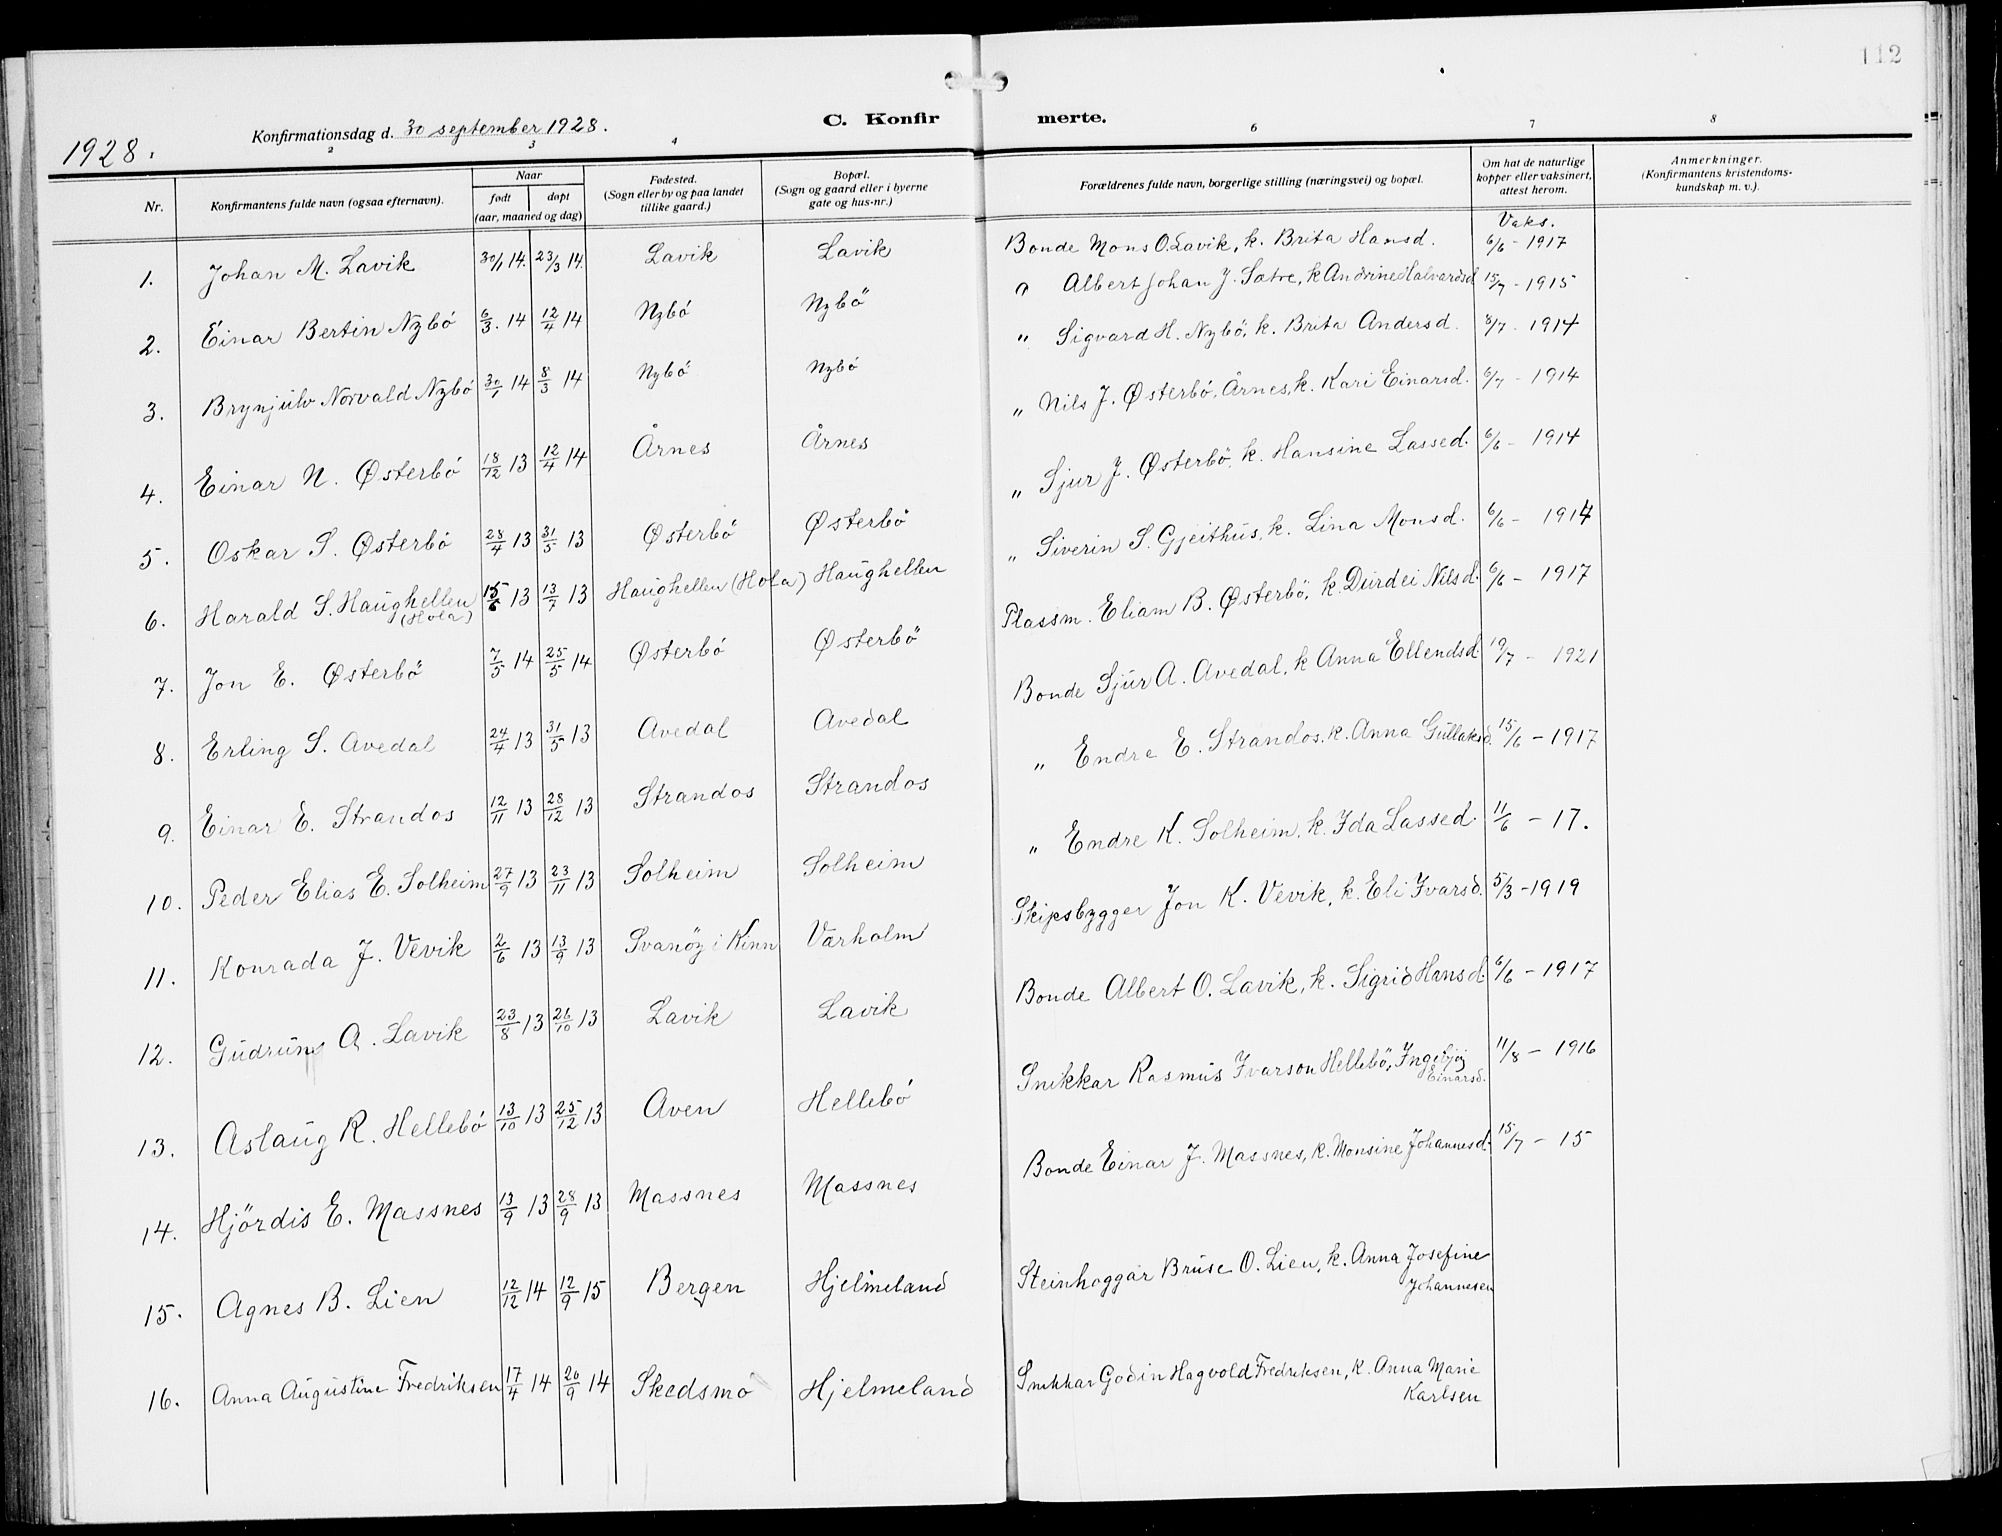 112
1928.
Konfirmationsdag d. 30 september 1928.
C. Konfir
merte.
1 2 3 4 6 7 8
Nr.
Konfirmantens fulde navn (ogsaa efternavn).
Naar
født
døpt
(aar, maaned og dag)
Fødested.
(Sogn eller by og paa landet
tillike gaard.)
Bopæl.
(Sogn og gaard eller i byerne
gate og hus-nr.)
Forældrenes fulde navn, borgerlige stilling (næringsvei) og bopæl.
Om hat de naturlige
kopper eller vaksinert,
attest herom.
Anmerkninger.
(Konfirmantens kristendoms-
kundskap m. v.).
Vaks.
1. Johan M. Lavik 30/1 14. 23/3 14. Lavik Lavik Bonde Mons O. Lavik, k. Brita Hansd. 6/6 - 1917
2. Einar Bertin Nybö 6/3. 14 12/4 14 Nybö Nybö " Albert Johan J. Sætre, k Andrine Halvardsd 15/7 - 1915
3. Brynjulv Norvald Nybö 30/1 14 8/3 14 Nybö Nybö " Sigvard H. Nybö, k. Brita Andersd. 8/7 - 1914
4. Einar N. Østerbö 18/12 13 12/4 14 Årnes Årnes " Nils J. Østerbö, Årnes, k. Kari Einarsd. 6/7 - 1914
5. Oskar S. Østerbö 28/4 13 31/5 13 Østerbö Østerbö " Sjur J. Østerbö, k. Hansine Lassed. 6/6 - 1914
6. Harald S. Haughellen (Hola) 15/6 13 13/7 13 Haughellen (Hola) Haughellen " Siverin S. Gjeithus, k. Lina Monsd. 6/6 - 1914
7. Jon E. Østerbö 7/5 14 25/5 14 Østerbö Østerbö Plassm. Eliam B. Østerbö, k. Durdei Nilsd. 6/6 - 1917
8. Erling S. Avedal 24/4 13 31/5 13 Avedal Avedal Bonde Sjur A. Avedal, k Anna Ellendsd 19/7 - 1921
9. Einar E. Strandos 12/11 13 28/12 13 Strandos Strandos " Endre E. Strandos, k. Anna Gullaksd. 15/6 - 1917
10. Peder Elias E. Solheim 27/9 13 23/11 13 Solheim Solheim " Endre K. Solheim, k. Ida Lassed. 11/6 - 17.
11. Konrada J. Vevik 2/6 13 13/9 13 Svanöy i Kinn Varholm Skipsbygger Jon K. Vevik, k. Eli Ivarsd. 5/3 - 1919
12. Gudrun A. Lavik 23/8 13 26/10 13 Lavik Lavik Bonde Albert O. Lavik, k. Sigrid Hansd. 6/6 - 1917
13. Aslaug R. Hellebö 13/10 13 25/12 13 Aven Hellebö Snikkar Rasmus Ivarson Hellebö, Ingebjørg Einarsd. 11/8 - 1916
14. Hjördis E. Massnes 13/9 13 28/9 13 Massnes Massnes Bonde Einar J. Massnes, k. Monsine Johannesd. 15/7 - 15
15. Agnes B. Lien 12/12 14 12/9 15 Bergen Hjelmeland Steinhoggar Bruse O. Lien, k. Anna Josefine
Johannesen
16. Anna Augustine Fredriksen 17/4 14 20/9 14 Skedsmo Hjelmeland Snikkar Godin Hagvold Fredriksen, k. Anna Marie
Karlsen